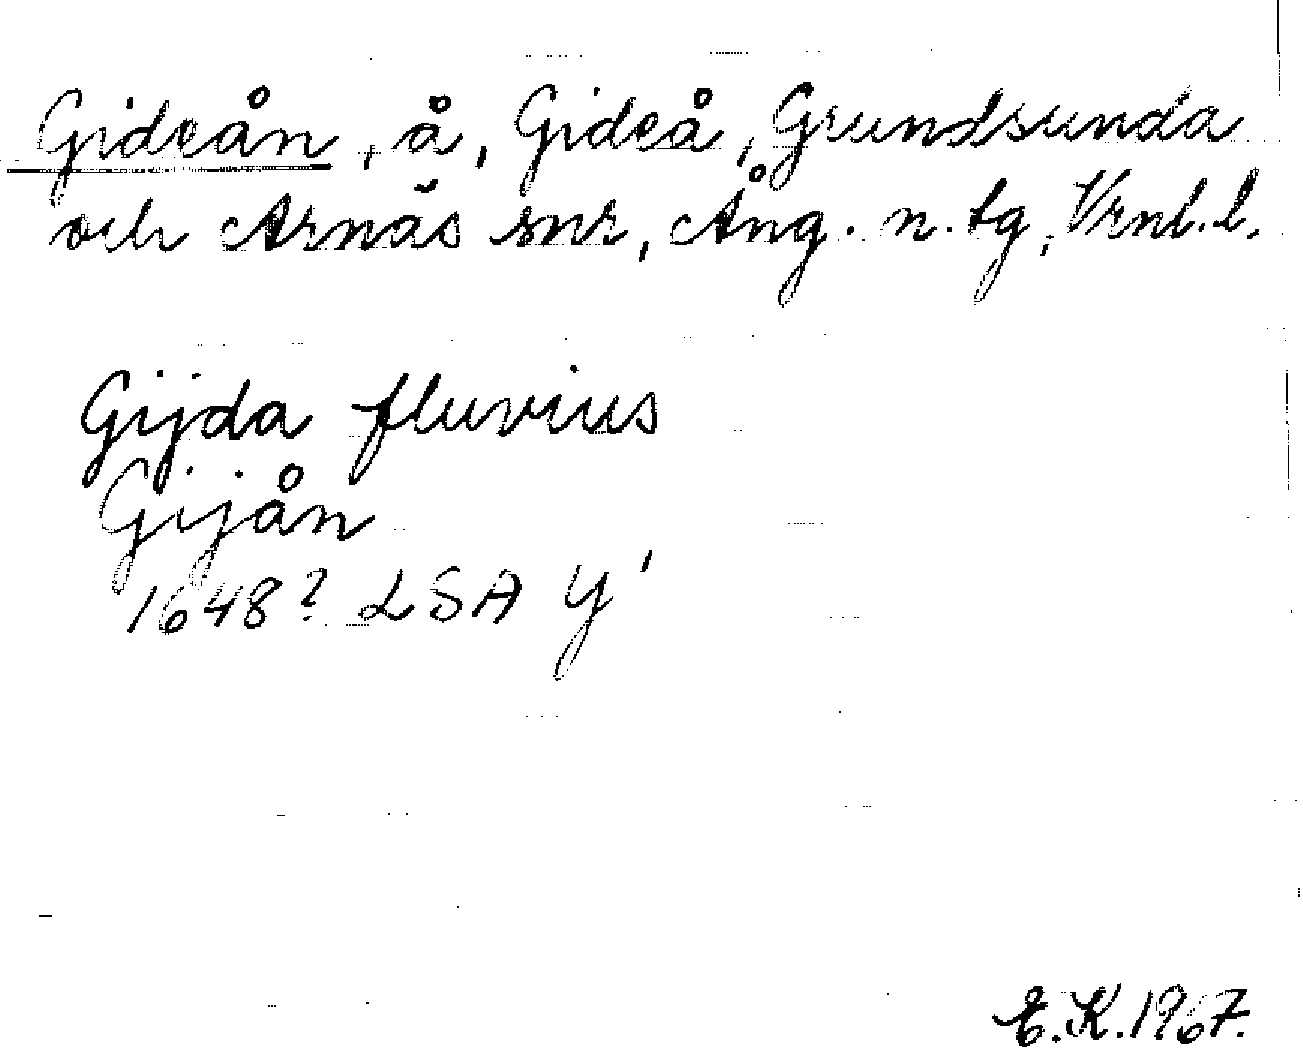 Gideån, å, Gideå, Grundsunda
och Arnäs snr, Ång. n. tg, Vrnl. l.
Gijda fluvius
Gijån
1648? LSA Y'
E.K. 1967.